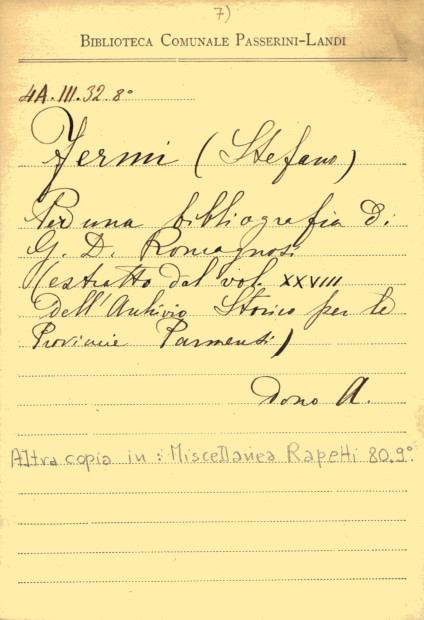 7)
BIBLIOTECA COMUNALE PASSERINI-LANDI
4A.III.32.8°
Fermi (Stefano)
Per una bibliografia di
G. D. Romagnosi
(estratto dal vol. XXVIII
dell'Archivio Storico per le
Provincie Parmensi)
Dono A.
Altra copia in: Miscellanea Rapetti 80.9°.